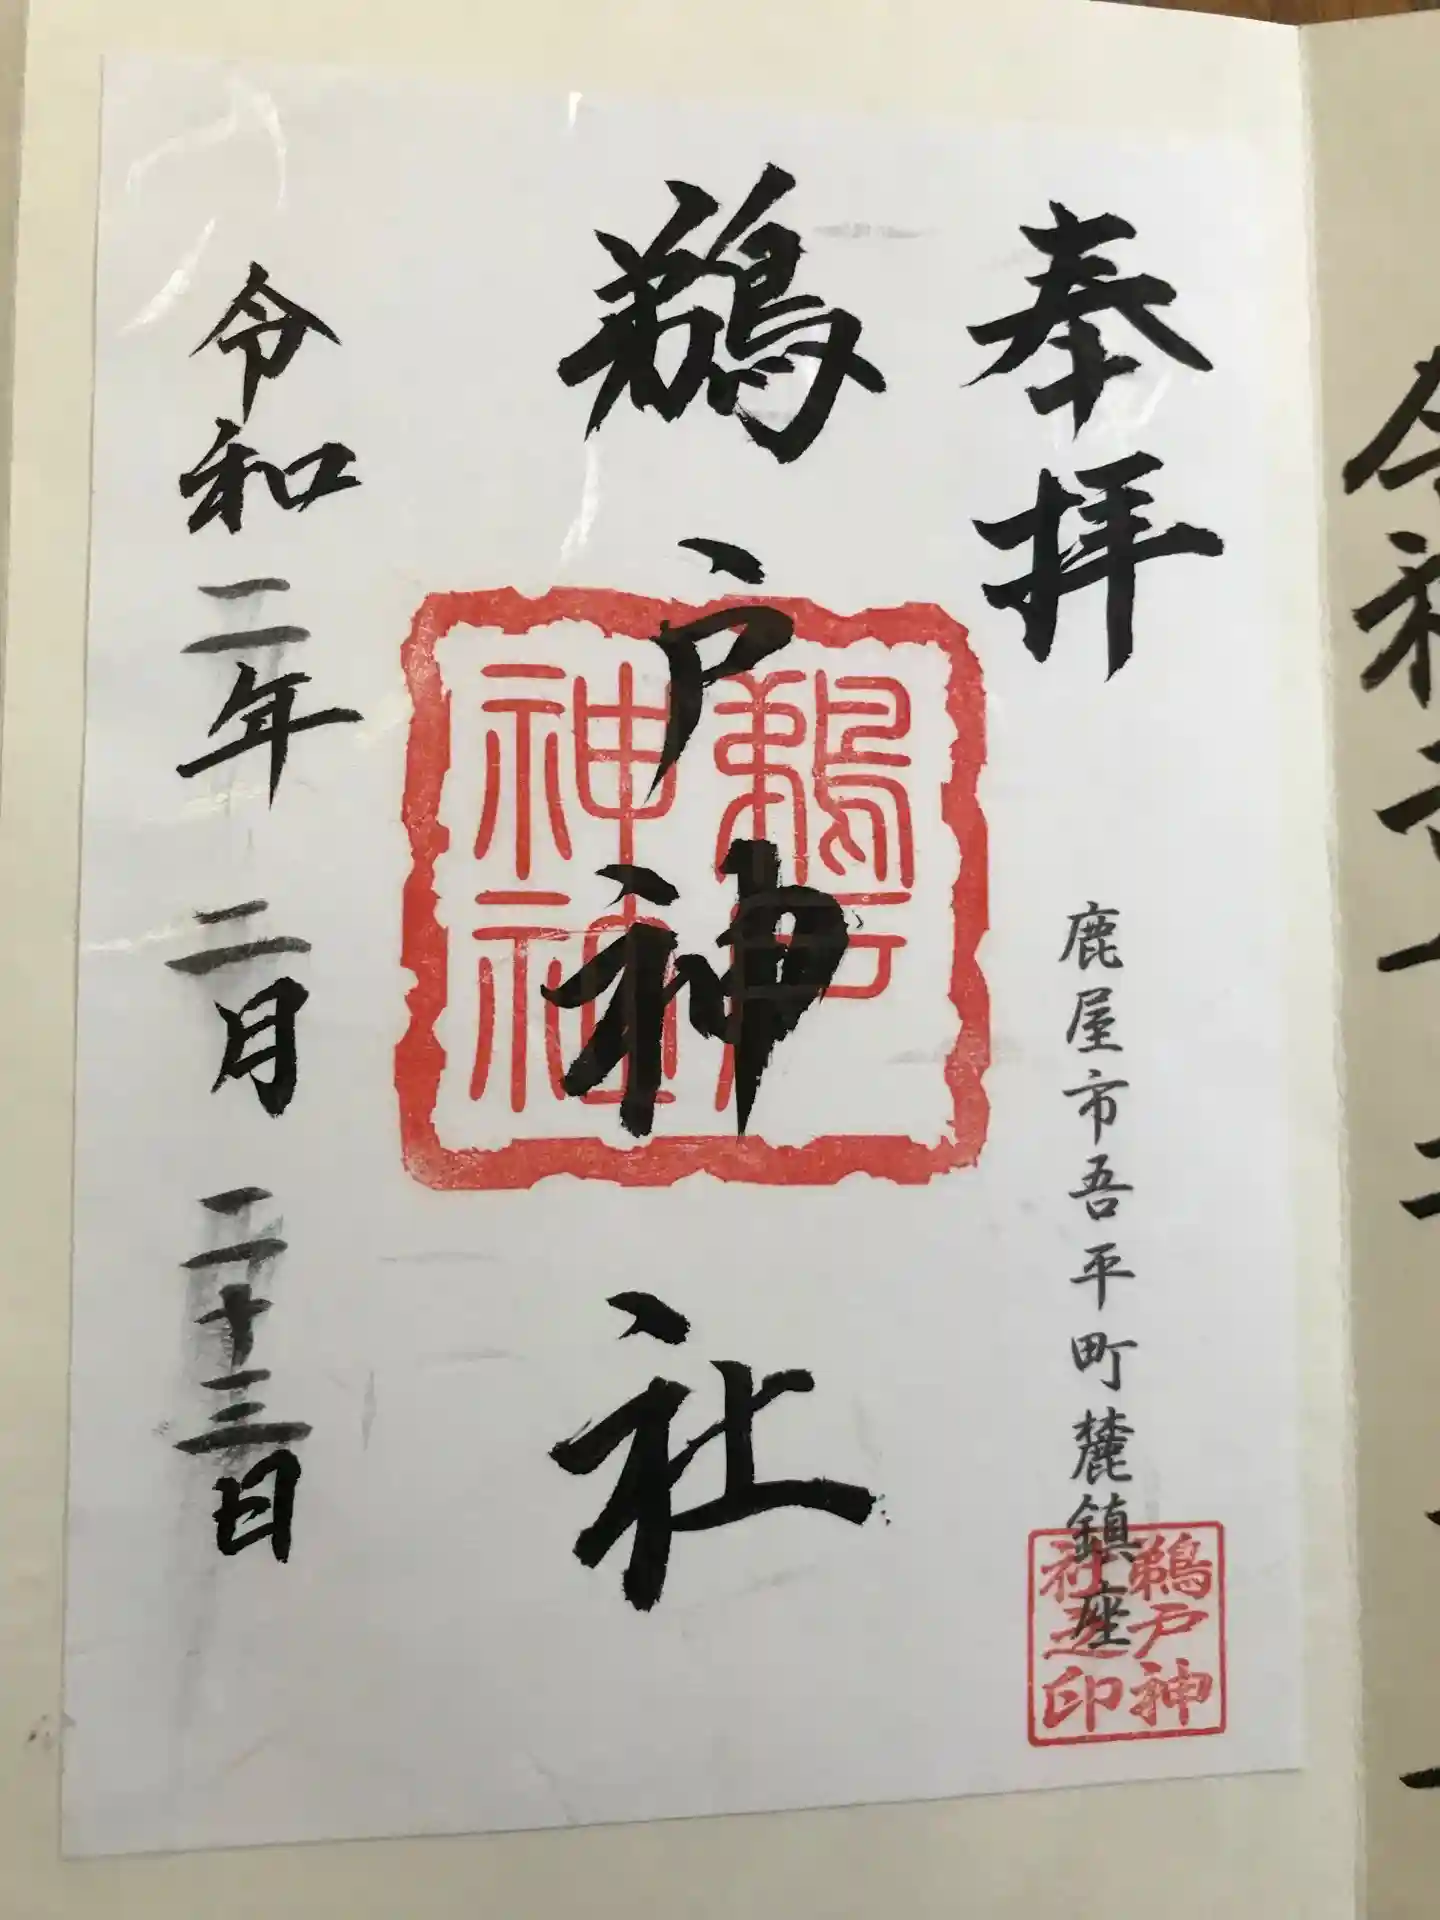 奉拝
鹿屋市吾平町麓鎮座
鵜戸神社之印
鵜戸神社
鵜戸神社
令和二年二月二十三日